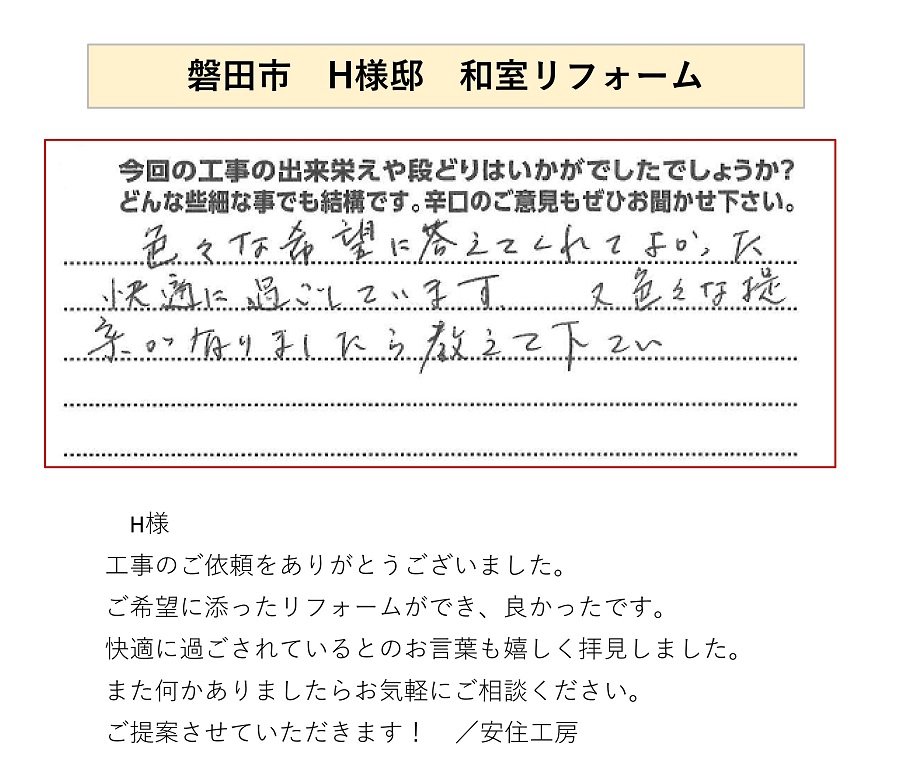 磐田市　H様邸　和室リフォーム
今回の工事の出来栄えや段どりはいかがでしたでしょうか？
どんな些細な事でも結構です。辛口のご意見もぜひお聞かせ下さい。
色々な希望に答えてくれてよかった
快適に過ごしています。 又色々な提
案が有りましたら教えて下さい
H様
工事のご依頼をありがとうございました。
ご希望に添ったリフォームができ、良かったです。
快適に過ごされているとのお言葉も嬉しく拝見しました。
また何かありましたらお気軽にご相談ください。
ご提案させていただきます！　／安住工房